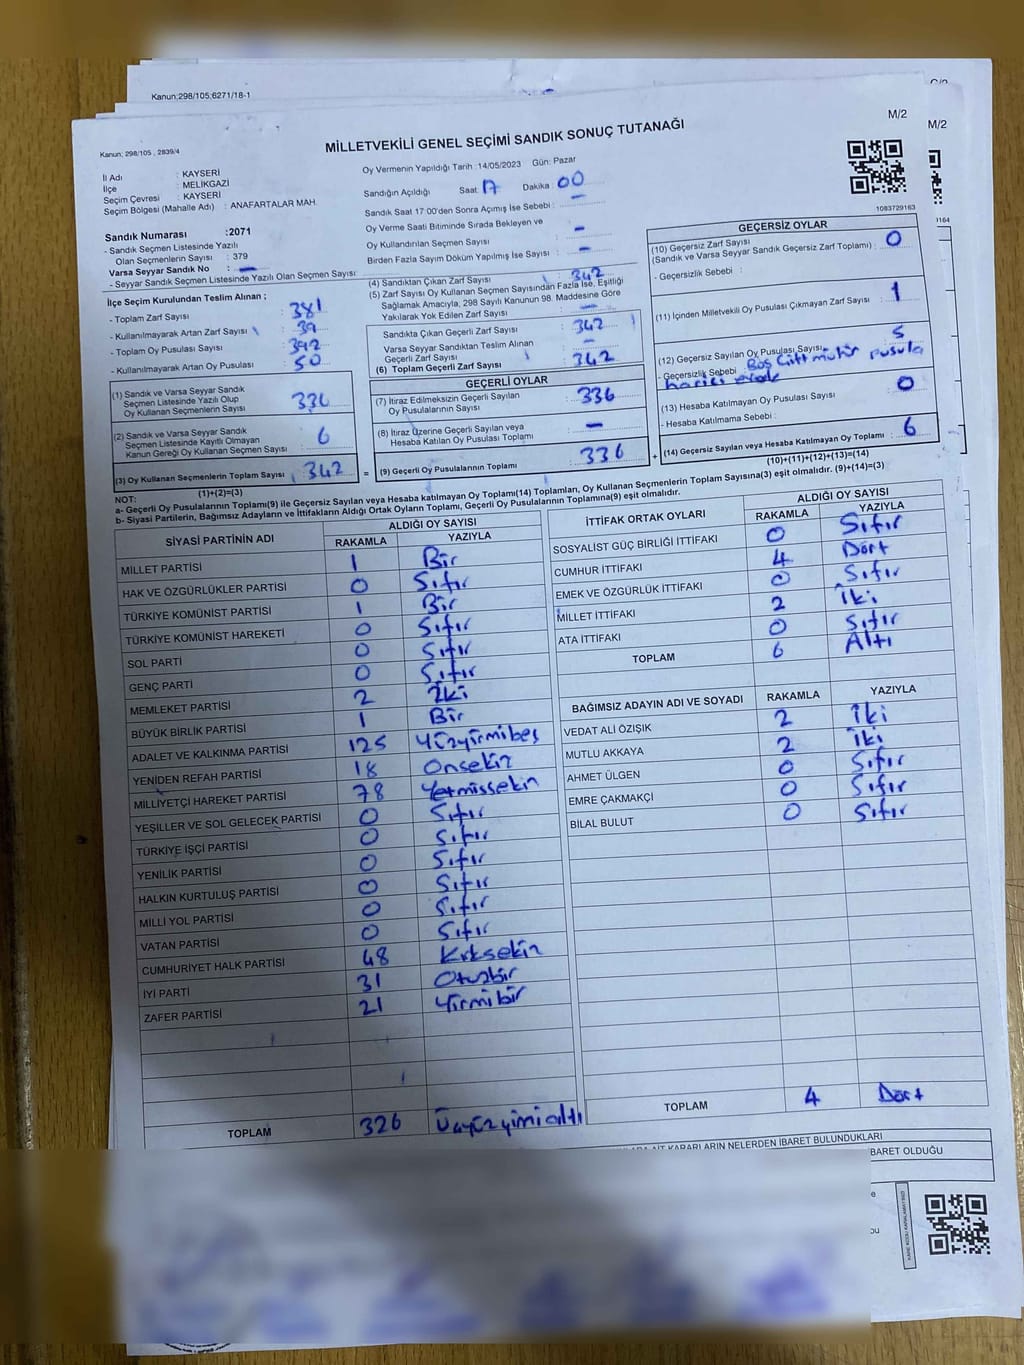 Kanun;298/105;6271/18-1
M/2
M/2
Kanun; 298/105 , 2839/4
MİLLETVEKİLİ GENEL SEÇİMİ SANDIK SONUÇ TUTANAĞI
İl Adı : KAYSERİ
İlçe : MELİKGAZİ
Seçim Çevresi : KAYSERİ
Seçim Bölgesi (Mahalle Adı) : ANAFARTALAR MAH.
Sandık Numarası :2071
- Sandık Seçmen Listesinde Yazılı
Olan Seçmenlerin Sayısı : 379
Varsa Seyyar Sandık No : -
- Seyyar Sandık Seçmen Listesinde Yazılı Olan Seçmen Sayısı :
Oy Vermenin Yapıldığı Tarih :14/05/2023 Gün: Pazar
Sandığın Açıldığı Saat 17 Dakika 00
Sandık Saat 17 00'den Sonra Açımış İse Sebebi : -
Oy Verme Saati Bitiminde Sırada Bekleyen ve
Oy Kullandırılan Seçmen Sayısı : -
Birden Fazla Sayım Döküm Yapılmış İse Sayısı : -
1083729163
İlçe Seçim Kurulundan Teslim Alınan ;
- Toplam Zarf Sayısı : 381
- Kullanılmayarak Artan Zarf Sayısı : 39
- Toplam Oy Pusulası Sayısı : 392
- Kullanılmayarak Artan Oy Pusulası : 50
(1) Sandık ve Varsa Seyyar Sandık
Seçmen Listesinde Yazılı Olup
Oy Kullanan Seçmenlerin Sayısı : 336
(2) Sandık ve Varsa Seyyar Sandık
Seçmen Listesinde Kayıtlı Olmayan
Kanun Gereği Oy Kullanan Seçmen Sayısı : 6
(3) Oy Kullanan Seçmenlerin Toplam Sayısı : 342
(1)+(2)=(3)
(4) Sandıktan Çıkan Zarf Sayısı : 342
(5) Zarf Sayısı Oy Kullanan Seçmen Sayısından Fazla İse, Eşitliği
Sağlamak Amacıyla, 298 Sayılı Kanunun 98. Maddesine Göre
Yakılarak Yok Edilen Zarf Sayısı : -
Sandıkta Çıkan Geçerli Zarf Sayısı : 342
Varsa Seyyar Sandıktan Teslim Alınan
Geçerli Zarf Sayısı : -
(6) Toplam Geçerli Zarf Sayısı : 342
GEÇERLİ OYLAR
(7) İtiraz Edilmeksizin Geçerli Sayılan
Oy Pusulalarının Sayısı : 336
(8) İtiraz Üzerine Geçerli Sayılan veya
Hesaba Katılan Oy Pusulası Toplamı : -
= (9) Geçerli Oy Pusulalarının Toplamı : 336 +
GEÇERSİZ OYLAR
(10) Geçersiz Zarf Sayısı
(Sandık ve Varsa Seyyar Sandık Geçersiz Zarf Toplamı) : 0
- Geçersizlik Sebebi :
(11) İçinden Milletvekili Oy Pusulası Çıkmayan Zarf Sayısı : 1
(12) Geçersiz Sayılan Oy Pusulası Sayısı : 5
- Geçersizlik Sebebi : Boş Çift mühür pusula
harici evrak
(13) Hesaba Katılmayan Oy Pusulası Sayısı : 0
- Hesaba Katılmama Sebebi :
(14) Geçersiz Sayılan veya Hesaba Katılmayan Oy Toplamı : 6
(10)+(11)+(12)+(13)=(14)
NOT:
a- Geçerli Oy Pusulalarının Toplamı(9) ile Geçersiz Sayılan veya Hesaba katılmayan Oy Toplamı(14) Toplamları, Oy Kullanan Seçmenlerin Toplam Sayısına(3) eşit olmalıdır. (9)+(14)=(3)
b- Siyasi Partilerin, Bağımsız Adayların ve İttifakların Aldığı Ortak Oyların Toplamı, Geçerli Oy Pusulalarının Toplamına(9) eşit olmalıdır.
SİYASİ PARTİNİN ADI ALDIĞI OY SAYISI
RAKAMLA YAZIYLA
MİLLET PARTİSİ 1 Bir
HAK VE ÖZGÜRLÜKLER PARTİSİ 0 Sıfır
TÜRKİYE KOMÜNİST PARTİSİ 1 Bir
TÜRKİYE KOMÜNİST HAREKETİ 0 Sıfır
SOL PARTİ 0 Sıfır
GENÇ PARTİ 0 Sıfır
MEMLEKET PARTİSİ 2 İki
BÜYÜK BİRLİK PARTİSİ 1 Bir
ADALET VE KALKINMA PARTİSİ 125 Yüzyirmibeş
YENİDEN REFAH PARTİSİ 18 Onsekiz
MİLLİYETÇİ HAREKET PARTİSİ 78 Yetmişsekiz
YEŞİLLER VE SOL GELECEK PARTİSİ 0 Sıfır
TÜRKİYE İŞÇİ PARTİSİ 0 Sıfır
YENİLİK PARTİSİ 0 Sıfır
HALKIN KURTULUŞ PARTİSİ 0 Sıfır
MİLLİ YOL PARTİSİ 0 Sıfır
VATAN PARTİSİ 0 Sıfır
CUMHURİYET HALK PARTİSİ 48 Kırksekiz
İYİ PARTİ 31 Otuzbir
ZAFER PARTİSİ 21 Yirmibir
TOPLAM 326 Üçyüzyirmialtı
İTTİFAK ORTAK OYLARI ALDIĞI OY SAYISI
RAKAMLA YAZIYLA
SOSYALIST GÜÇ BİRLİĞİ İTTİFAKI 0 Sıfır
CUMHUR İTTİFAKI 4 Dört
EMEK VE ÖZGÜRLÜK İTTİFAKI 0 Sıfır
MİLLET İTTİFAKI 2 İki
ATA İTTİFAKI 0 Sıfır
TOPLAM 6 Altı
BAĞIMSIZ ADAYIN ADI VE SOYADI RAKAMLA YAZIYLA
VEDAT ALİ ÖZIŞIK 2 İki
MUTLU AKKAYA 2 İki
AHMET ÜLGEN 0 Sıfır
EMRE ÇAKMAKÇİ 0 Sıfır
BİLAL BULUT 0 Sıfır
TOPLAM 4 Dört
AİT KARARLARIN NELERDEN İBARET BULUNDUKLARI
BARET OLDUĞU